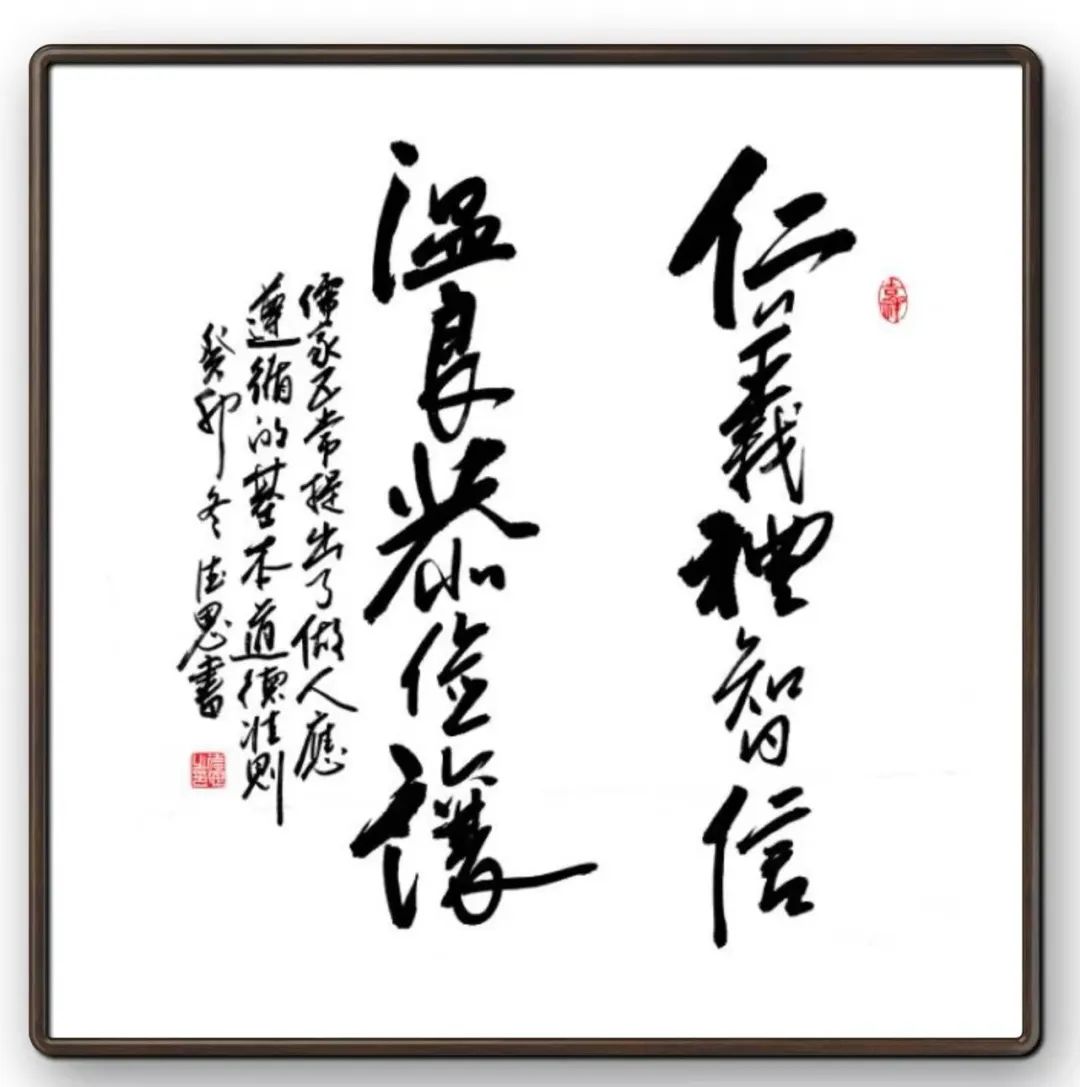 仁義禮智信
溫良恭儉讓
儒家五常提出了做人應
遵循的基本道德准则
癸卯冬德思書